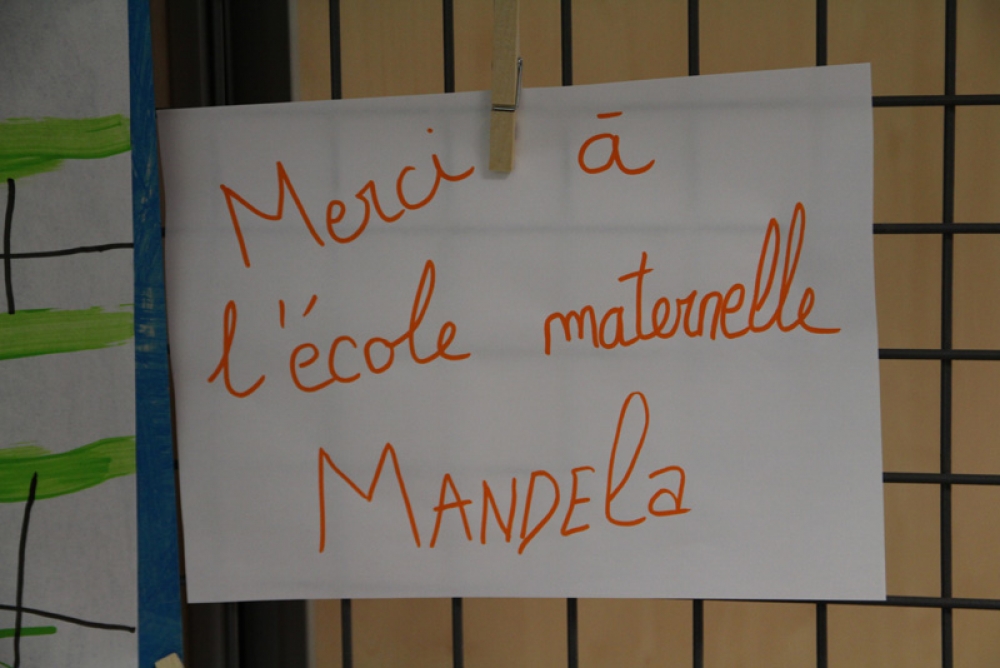 Merci à
l'école maternelle
MANDEla